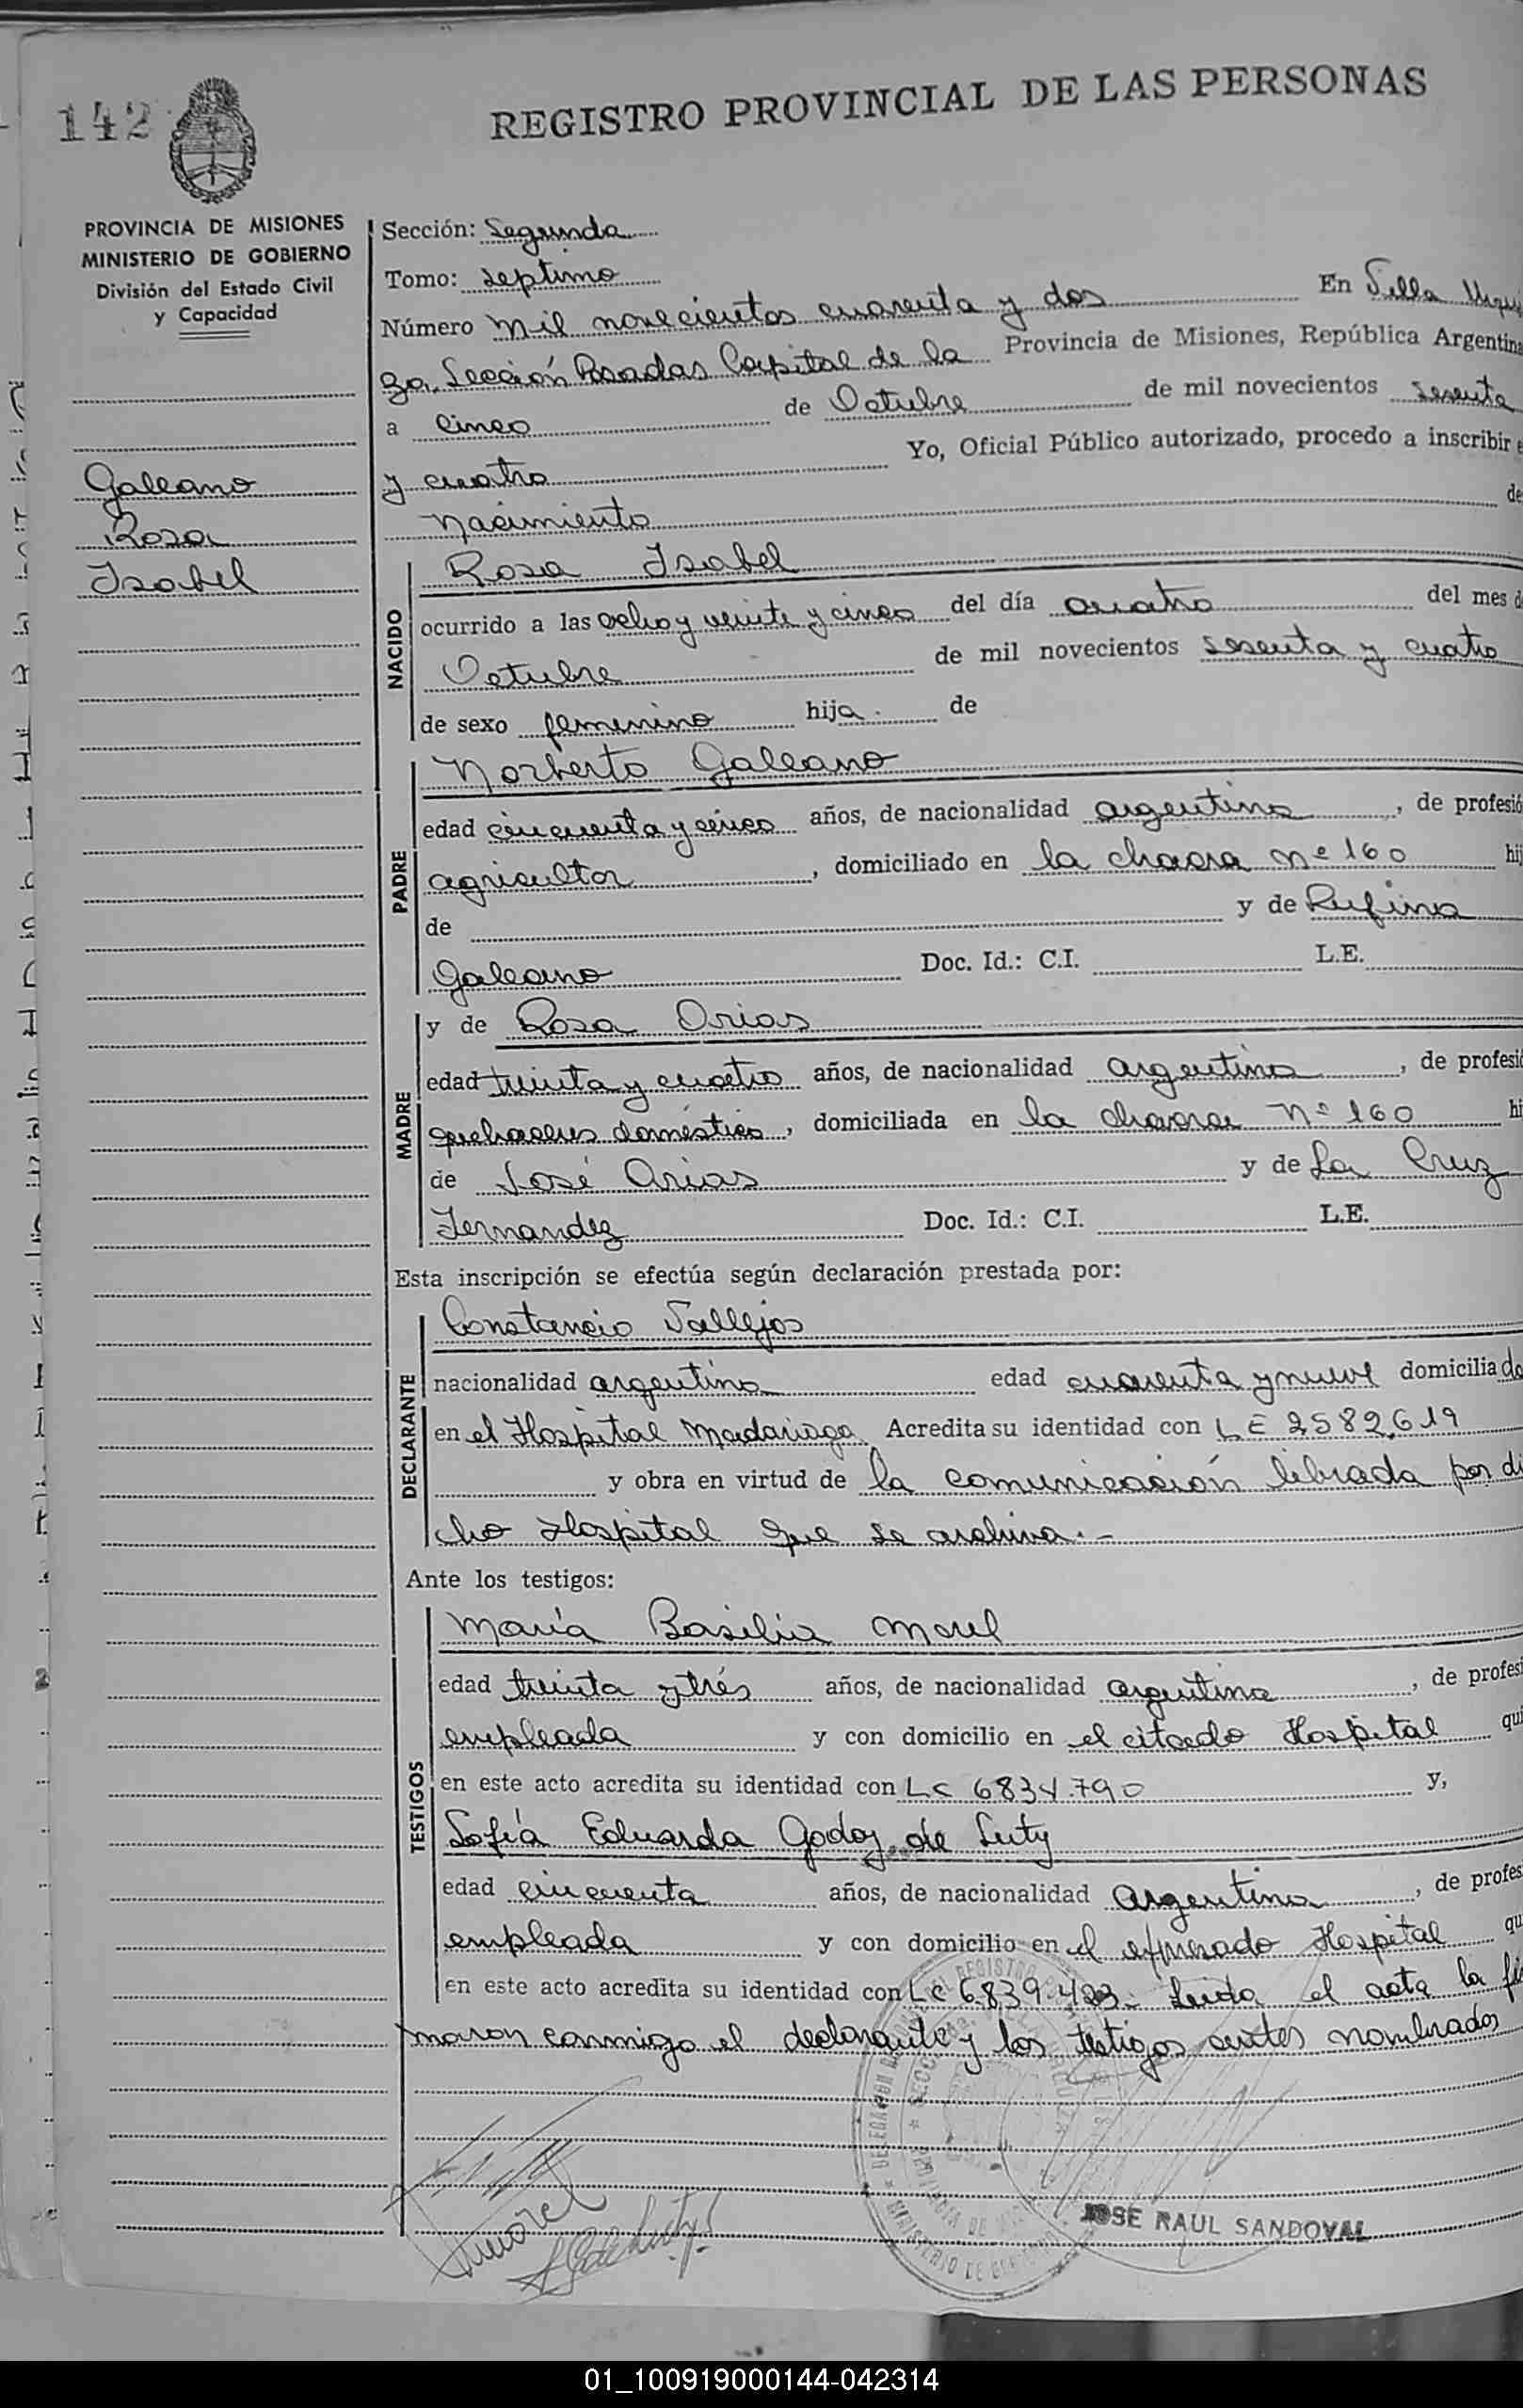 142
REGISTRO PROVINCIAL DE LAS PERSONAS
PROVINCIA DE MISIONES
MINISTERIO DE GOBIERNO
División del Estado Civil
y Capacidad
Galeano
Rosa
Isabel
Sección: Segunda
Tomo: septimo
Número mil novecientos cuarenta y dos En Villa Urqui
za, Sección Posadas Capital de la Provincia de Misiones, República Argentina
a cinco de Octubre de mil novecientos sesenta
y cuatro Yo, Oficial Público autorizado, procedo a inscribir e
nacimiento de
NACIDO
Rosa Isabel
ocurrido a las ocho y veinte y cinco del día cuatro del mes d
Octubre de mil novecientos sesenta y cuatro
de sexo femenino hija. de
PADRE
Norberto Galeano
edad cincuenta y cinco años, de nacionalidad argentina, de profesió
agricultor, domiciliado en la chacra nº 160 hij
de y de Rufina
Galeano Doc. Id.: C.I. L.E.
MADRE
y de Rosa Arias
edad treinta y cuatro años, de nacionalidad argentina, de profesió
quehaceres domésticos, domiciliada en la chacra nº 160 hi
de José Arias y de La Cruz
Fernandez Doc. Id.: C.I. L.E.
Esta inscripción se efectúa según declaración prestada por:
DECLARANTE
Constancio Vallejos
nacionalidad argentina edad cuarenta y nueve domiciliado
en el Hospital Madariaga Acredita su identidad con LE 2582619
y obra en virtud de la comunicación librada por di
cho Hospital que se archiva.-
Ante los testigos:
TESTIGOS
María Basilia Morel
edad treinta y trés años, de nacionalidad argentina, de profesi
empleada y con domicilio en el citado Hospital qui
en este acto acredita su identidad con LC 6834.790 y,
Sofía Eduarda Godoy de Luty
edad cincuenta años, de nacionalidad argentina, de profes
empleada y con domicilio en el expresado Hospital qu
en este acto acredita su identidad con LC 6.839.423.- Leida el acta la fir
maron conmigo el declarante y los testigos antes nombrados
Morel
JOSE RAUL SANDOVAL
01_100919000144-042314